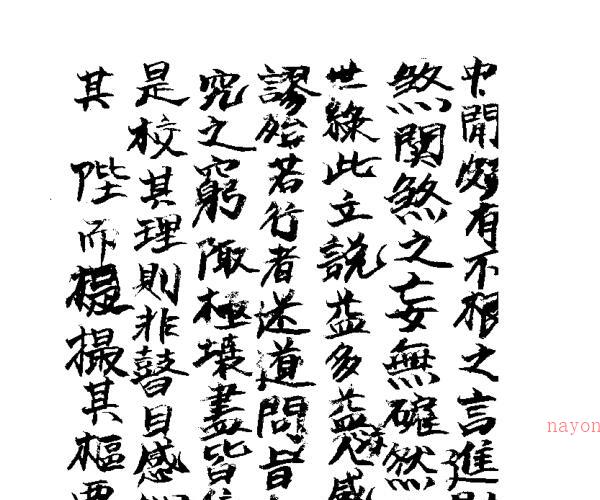 中閒頗有不根之言進
煞關煞之妄無確然
世緣此立說益多益人感
謬殆若行者迷道問盲
究之窮陬極壤盡皆
是校其理則非瞽目感
其陛而撮撮其樞要
nayon